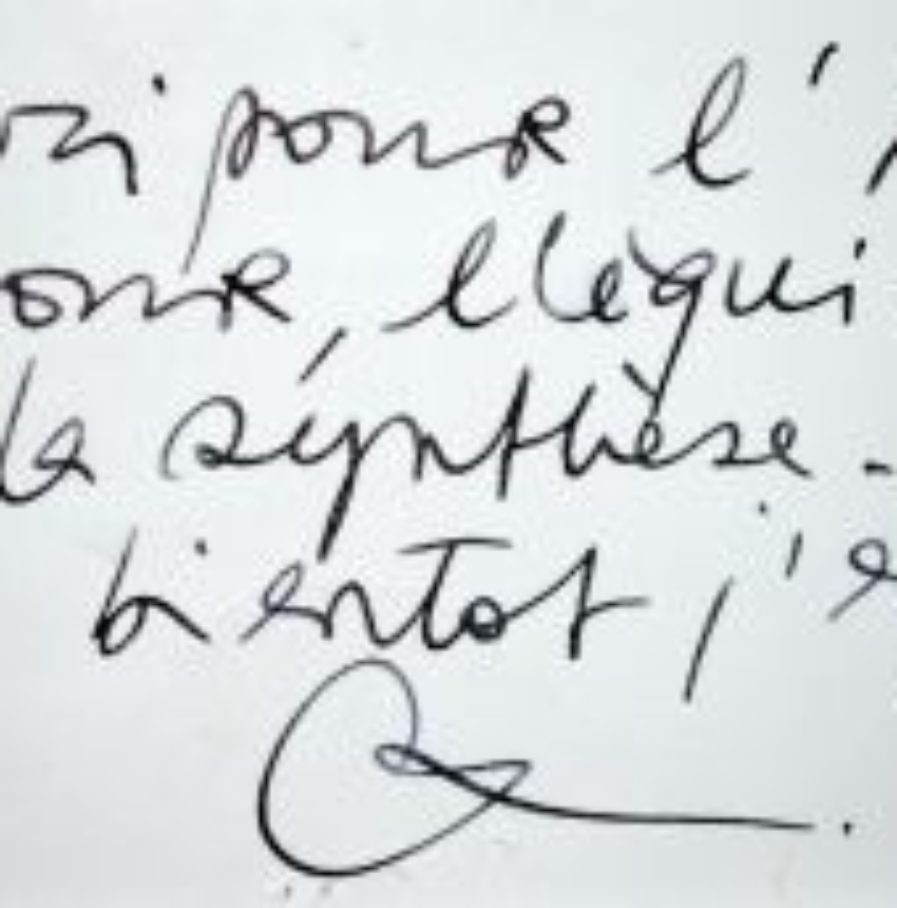 ci pour l'
our, l'équi
la synthèse.
bientot, j'e